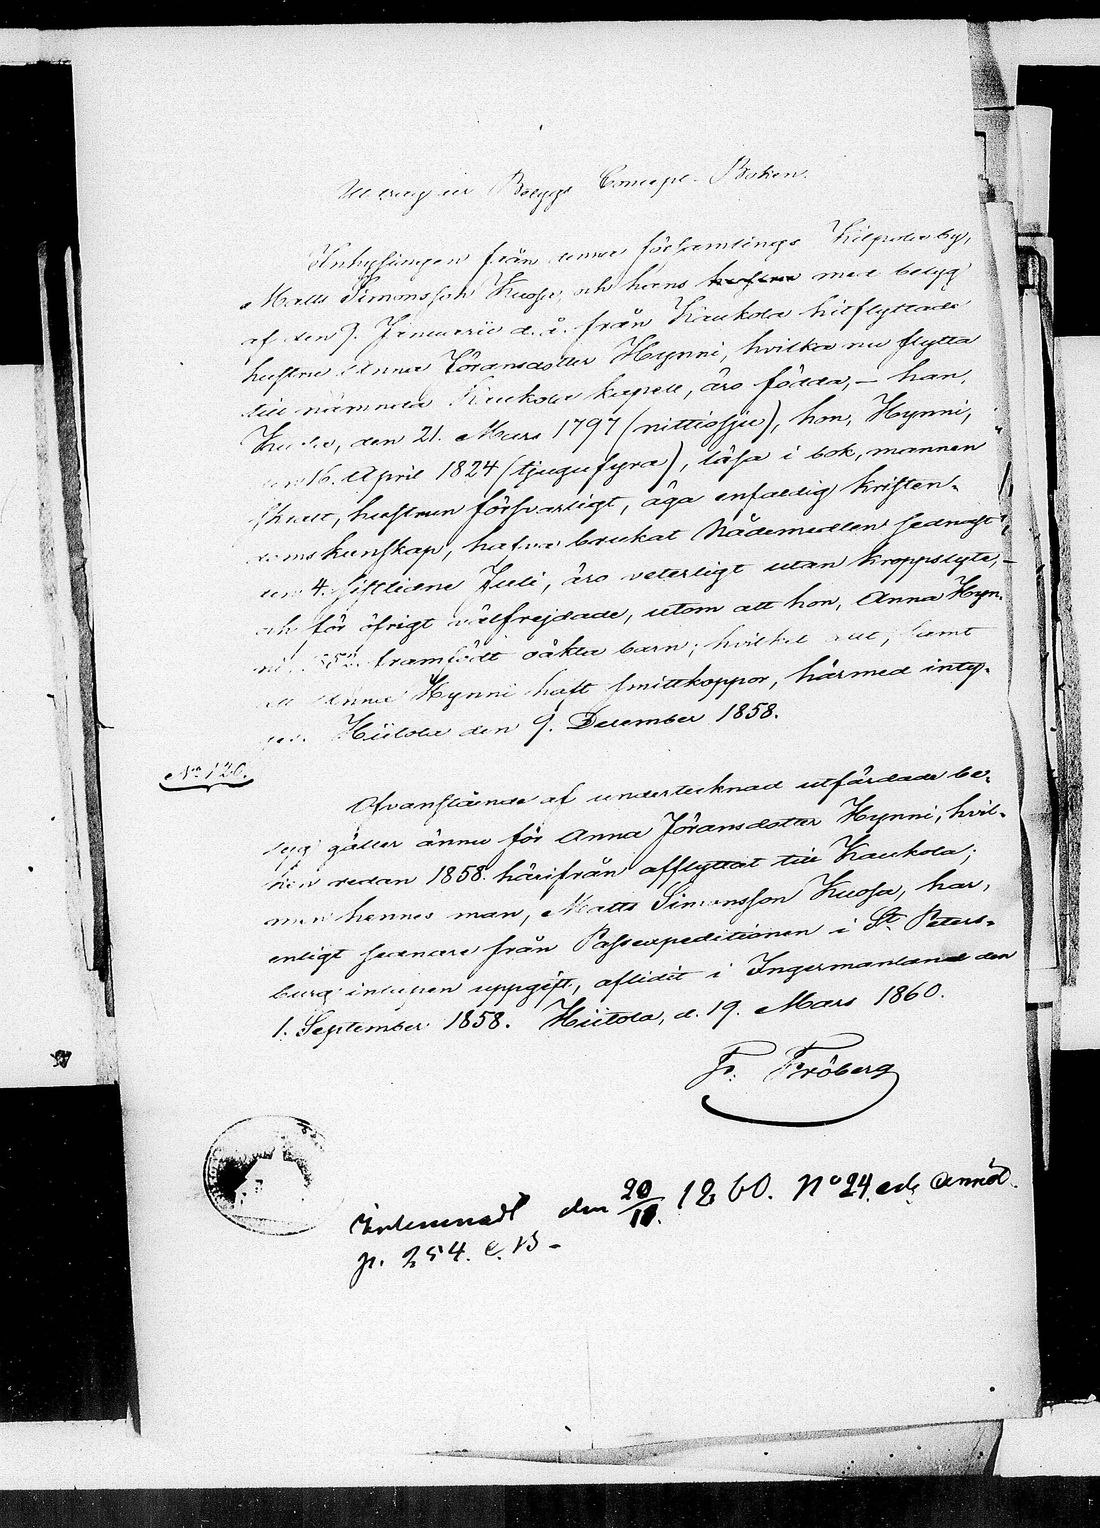 Utdrag ur Betygs Concept-Boken.
Inhysingen från denna församlings Kilpola by,
Matts Simonsson Kuosa, och hans hustru med betyg
af den 7. Januarii d. å. från Kaukola hitflyttade
hustru Anna Jöransdotter Hynni, hvilka nu flytta
till nämnda Kaukola kapell, äro födda, – han,
Kuosa, den 21. Mars 1797 (nittiosju), hon, Hynni,
den 16. April 1824 (tjugufyra), läsa i bok, mannen
, hustrun försvarligt, äga enfaldig kristen-
doms kunskap, hafva brukat Nådemedlen sednast
den 4. sistlidne Juli, äro veterligt utan kroppslyte, –
och för öfrigt välfrejdade, utom att hon, Anna Hyn-
ni, framfödt oäkta barn; hvilket allt, samt
att Anna Hynni haft smittkoppor, härmed inty-
gas. Hiitola den 9. December 1858.
No 126.
Ofvanstående af undertecknad utfärdade be-
tyg gäller ännu för Anna Jöransdotter Hynni, hvil-
ken redan 1858 härifrån afflyttat till Kaukola;
men hennes man, Matts Simonsson Kuosa, har,
enligt sednare från Passexpeditionen i St. Peters-
burg inlupen uppgift, aflidit i Ingermanland den
1. September 1858. Hiitola, d. 19. Mars 1860.
Fr. Fröberg
den 20/11. 1860. No 24
p. 254.